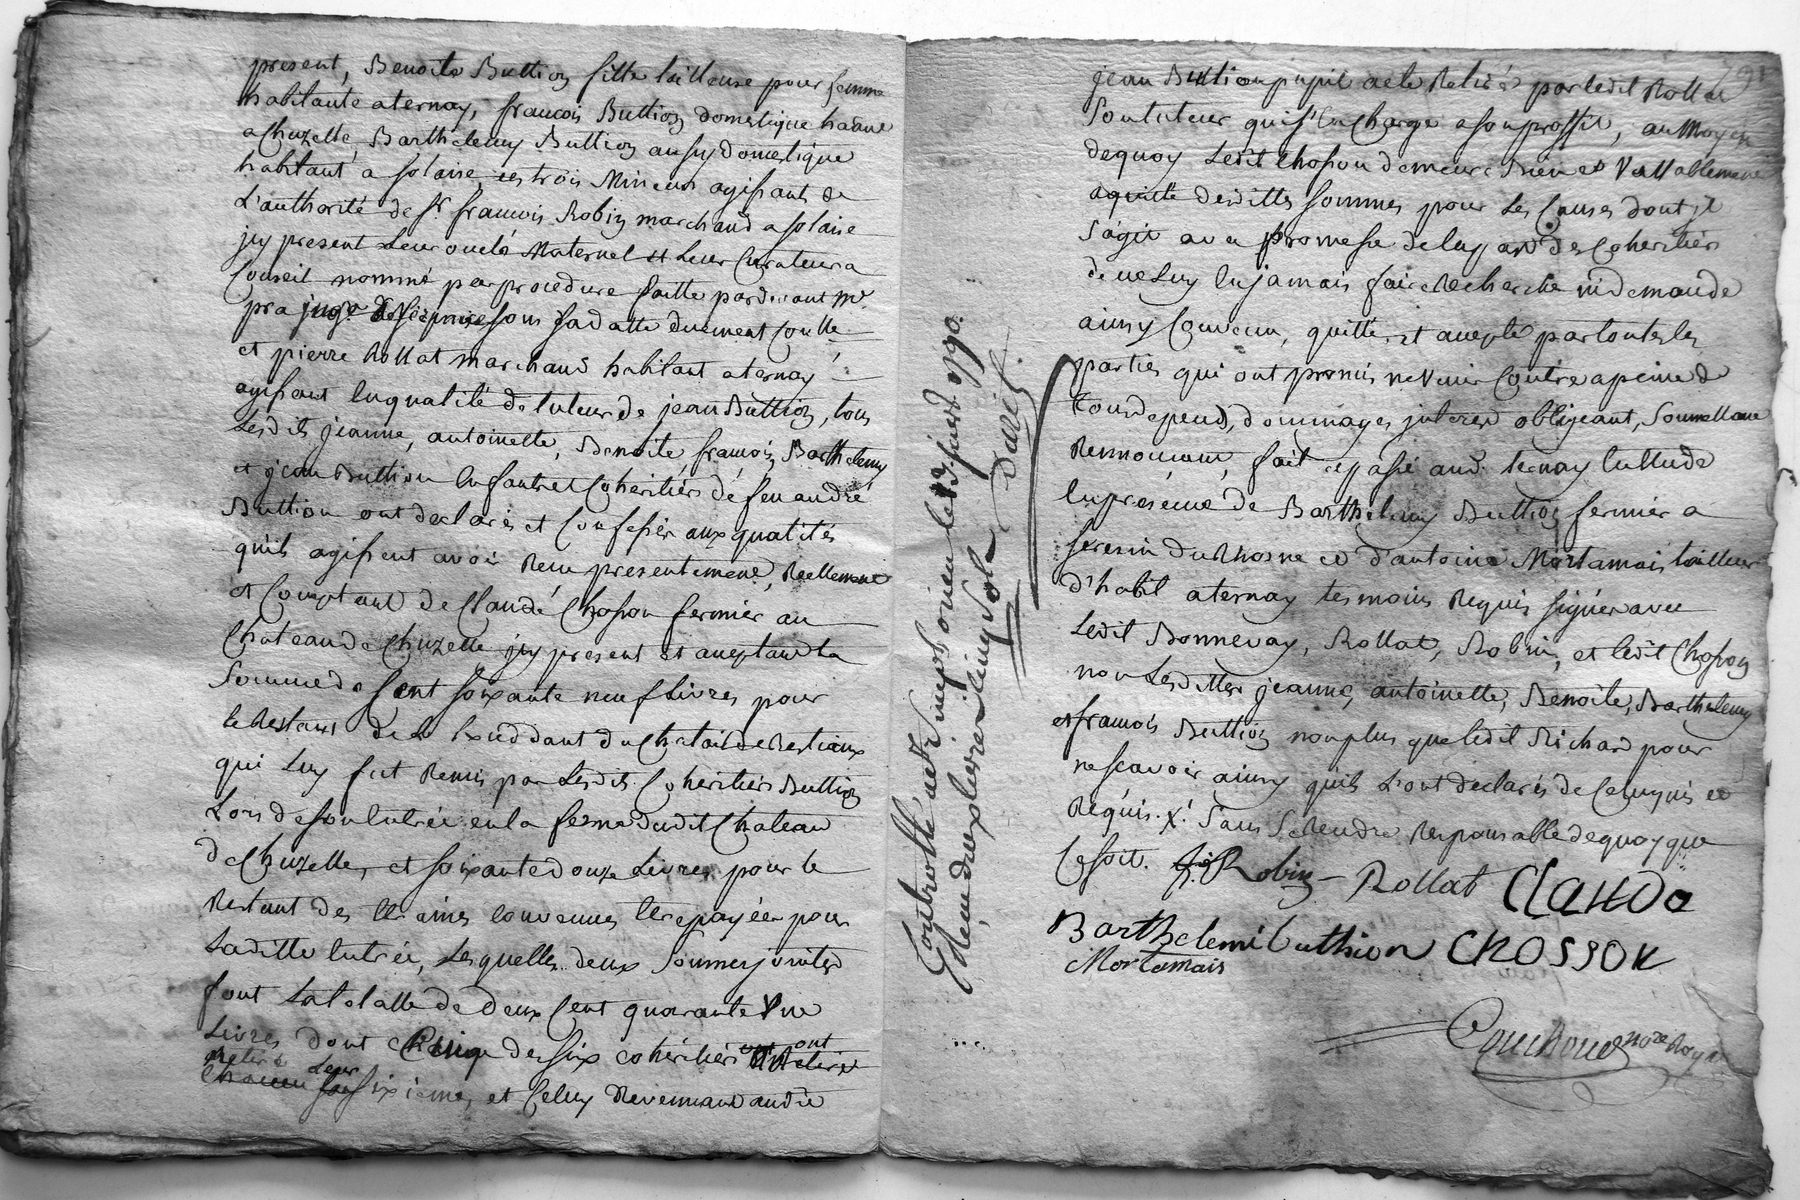 present, Benoite Buttion fille tailleuse pour femme
habitante a ternay, francois Buttion domestique habitant
a Chuzelle, Barthelemy Buttion aussy domestique
habitant a solaise, ces trois Mineurs agissant de
L'authorité de Sr francois Robin marchand a solaise
jcy present Leur oncle Maternel et Leur Curateur a
Conseil nommé par procedure faitte pardevant Mr
juge sous sa datte duement Conlle
et pierre Rollat marchand habitant a ternay
agissant En qualité de tuteur de jean Buttion, tous
Lesdits jeanne, antoinette, Benoite, francois, Barthelemy
et jean Buttion Enfants et Coheritiers de feu andré
Buttion ont declarés et Confessér aux qualités
quils agissent avoir Receu presentement, Reellement
et Comptant de Claude Chosson fermier au
Chateau de Chuzelle jcy present et aceptant La
Somme de Cent soixante neuf Livres pour
le Restant de L'Exceddant du Chatail de Bestiaux
qui Luy fut Remis par Lesdits Coheritiers Buttion
Lors de son Entrée en la ferme dudit Chateau
de Chuzelle, et soixante douze Livres pour le
Restant des Etraines convenues Etre payées pour
Laditte Entrée, Lesquelles deux Sommes jointes
font La totalle de deux Cent quarante Une
Livres dont Chaque des six cohéritiers ont
Retiré Leur sixieme, et Celuy Revennant audit
jean Buttion pupil a eté Retiré par ledit Rollat
Son tuteur qui s'En Charge a son proffit, au Moyen
dequoy Ledit Chosson demeure Bien et Vallablement
aquitté desdittes sommes pour Les Causes dont jl
s'agit avec promesse de la part des Coheritiers
de ne Luy En jamais faire Recherche ni demande
ainsy Convenu, quitté, et acepté par toutes les
parties qui ont promis ne Venir Contre a peine de
tous depend, dommages jnterest obligeant, Soumettant
Rennoncant, fait et passé aud. ternay Ettude
En presence de Barthelemy Buttion fermier a
seresin du Rhosne et d'antoine Mortamais tailleur
d'habit a ternay temoins Requis signés avec
Ledit Bonnevay, Rollat, Robin, et Ledit Chosson
non Lesdittes jeanne, antoinette, Benoite, Barthelemy
et francois Buttion non plus que Ledit Richard pour
ne scavoir ainsy quils L'ont declarés de Ce enquis et
Requis. X. Sans Se Rendre Responsable de quoy que
Ce soit. Robin Rollat CLAUDe
Barthelemi buthion CHOSSON
Mortamais
Nore Royal
Controllé